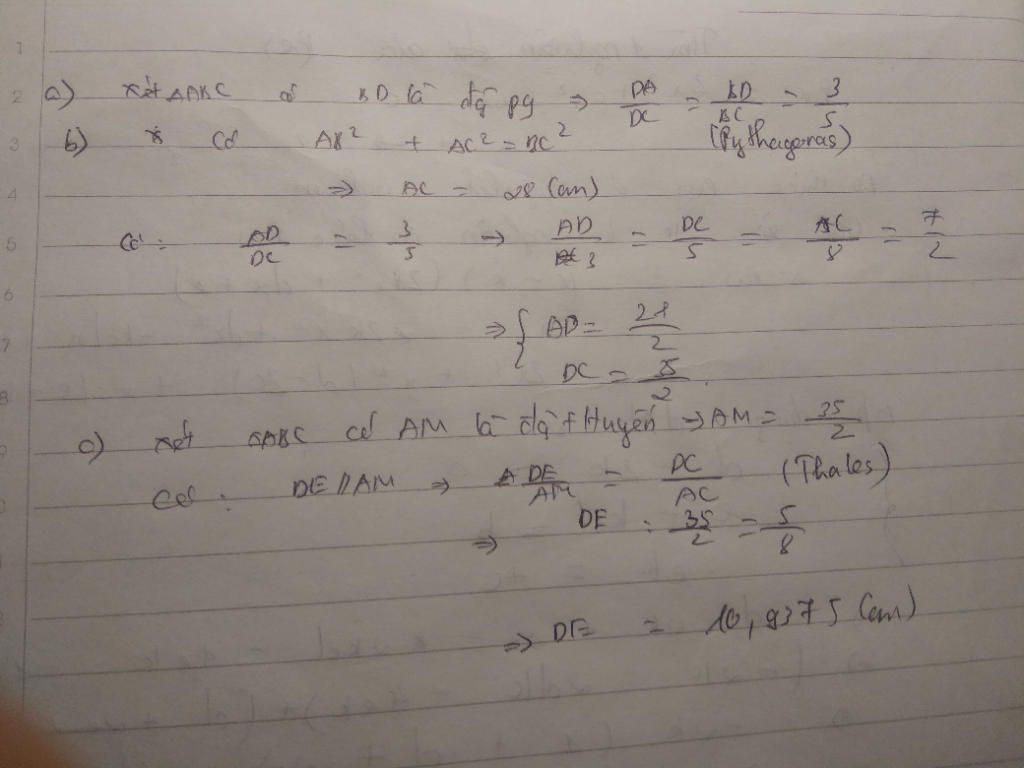 a) xét △ABC có BD là đg pg ⇒ DA/DC = BD/BC = 3/5
b) * Có AB² + AC² = BC² (Pythagoras)
⇒ AC = 28 (cm)
Có: AD/DC = 3/5 → AD/3 = DC/5 = AC/8 = 7/2
⇒ { AD = 21/2
DC = 35/2
c) xét △ABC có AM là đg tHuyến ⇒ AM = 35/2
Có: DE // AM ⇒ DE/AM = DC/AC (Thales)
⇒ DE : 35/2 = 5/8
⇒ DE = 10,9375 (cm)